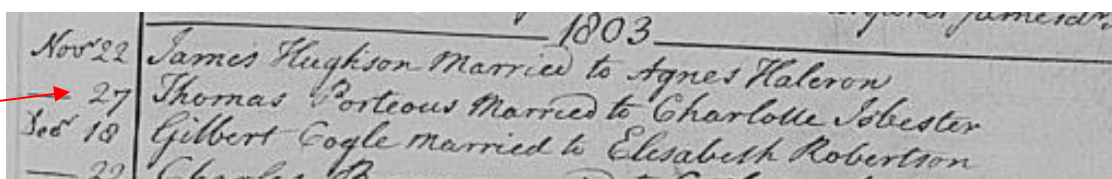 1803
Novr 22 James Hughson Married to Agnes Halcron
— 27 Thomas Porteous Married to Charlotte Isbester
Decr 18 Gilbert Cogle Married to Elisabeth Robertson
— 22 Charles